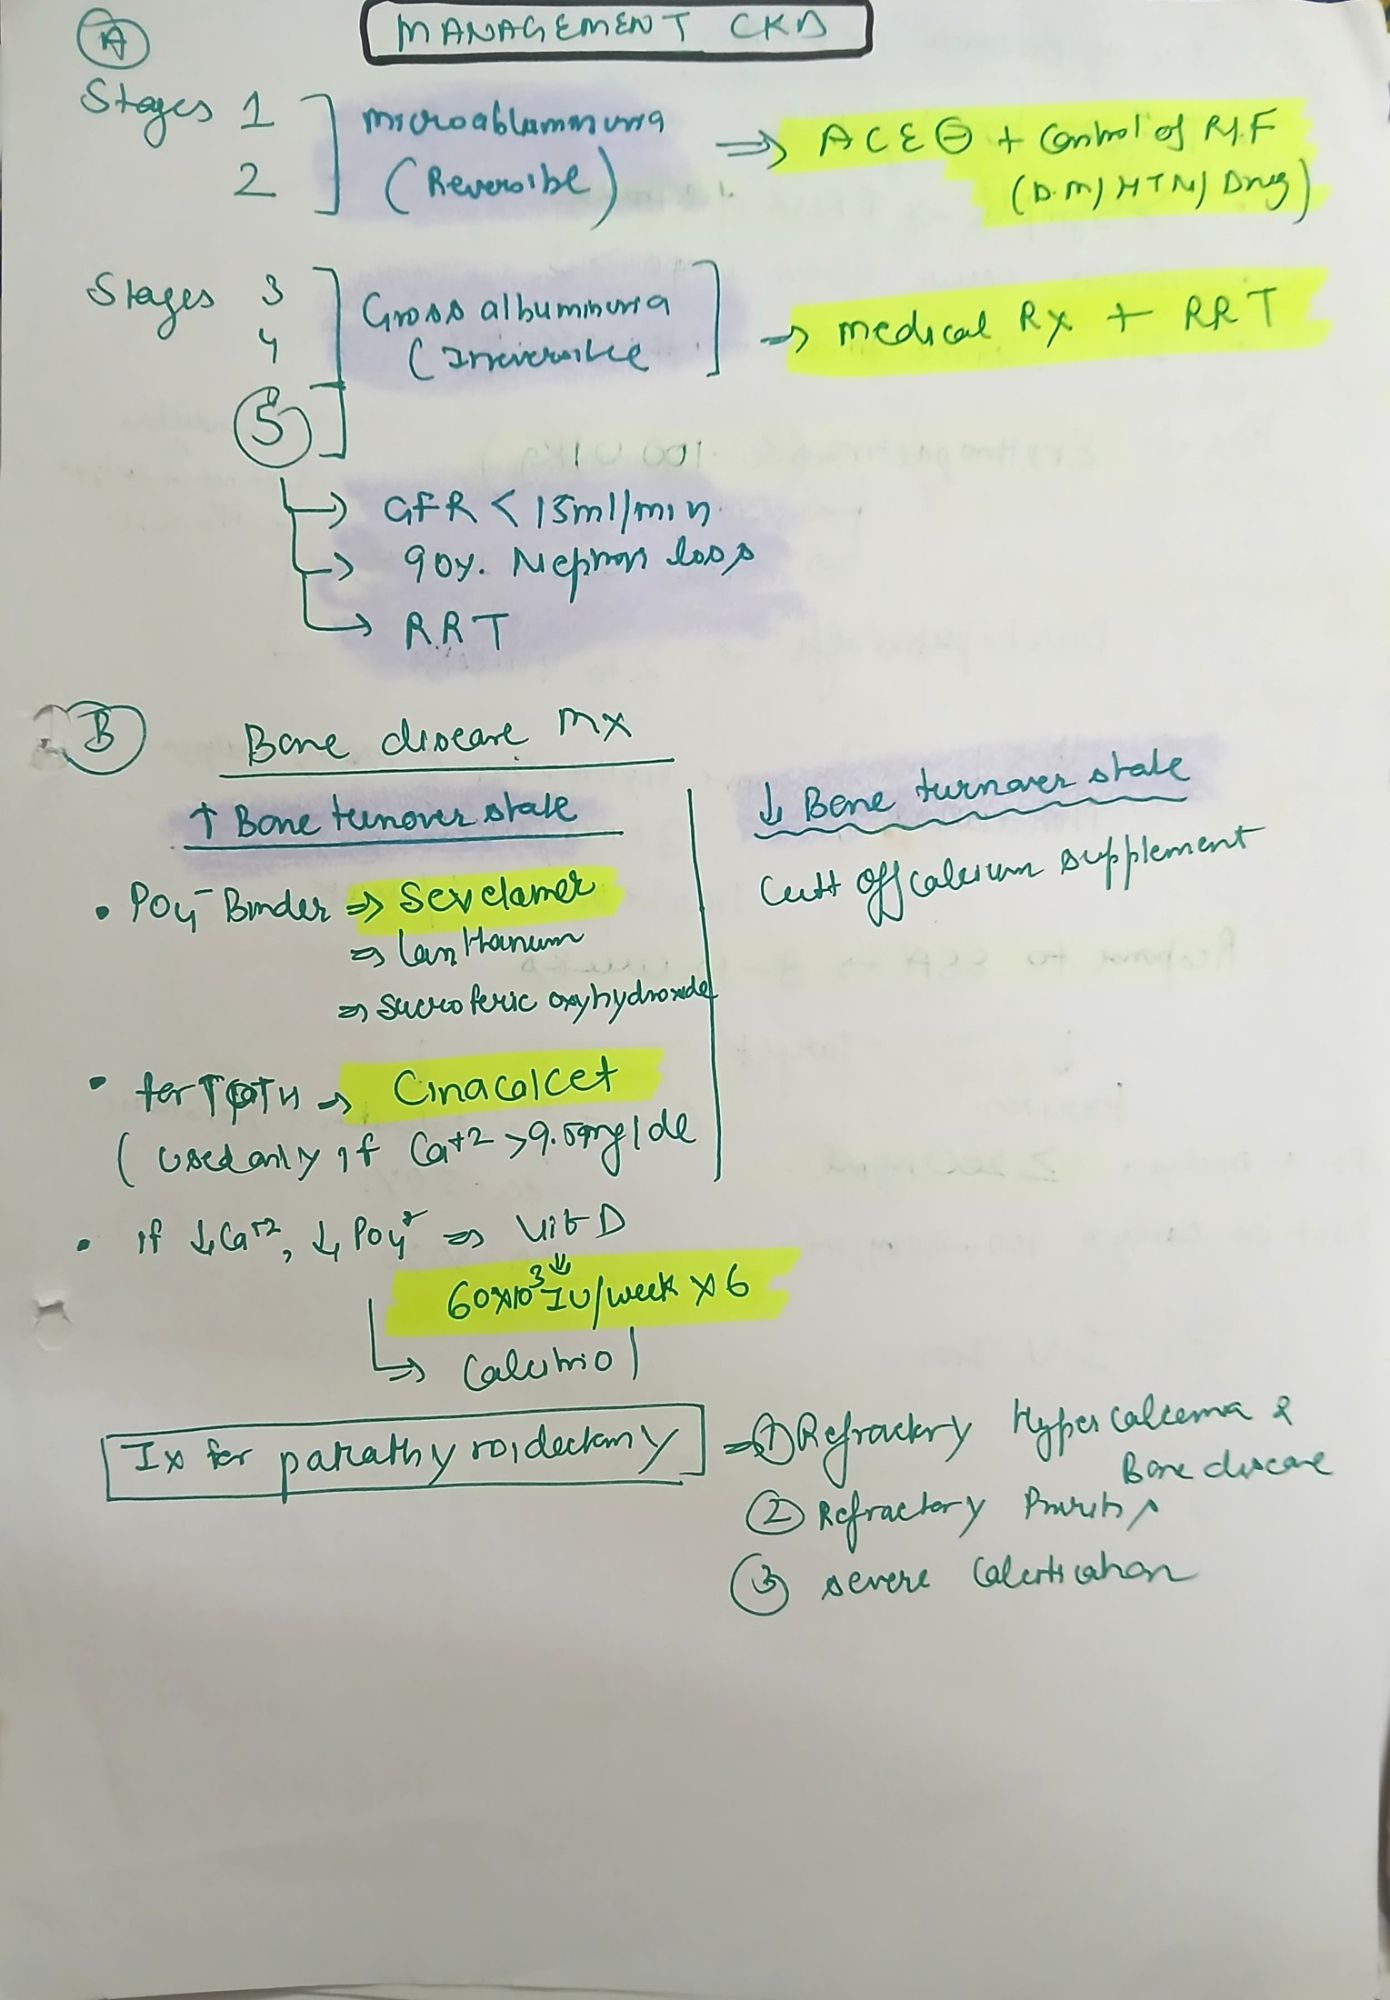 A
MANAGEMENT CKD
Stages 1
2
microablumninuria
(Reversibe)
=> ACE ⊖ + Control of R/F
(D.M/HTN/Drug)
Stages 3
4
5
Gross albuminuria
(Irreversible
=> medical Rx + RRT
→ GFR < 15ml/min
→ 90%. Nephron loss
→ R.R.T
B
Bone disease Mx
↑ Bone turnover state
• PO4⁻ Binder => Sevelamer
=> lanthanum
=> Sucroferic oxyhydroxide
• for ↑PTH => Cinacalcet
(used only if Ca+2 > 9.5mg/dl
• if ↓Ca+2, ↓PO4 => Vit D
⇓
60x10³ IU/week x 6
→ Calcitriol
↓ Bone turnover state
Cutt off calcium supplement
Ix for parathyroidectomy
=> ① Refractory Hypercalcemia &
Bone disease
② Refractory Pruritis
③ severe Calcification